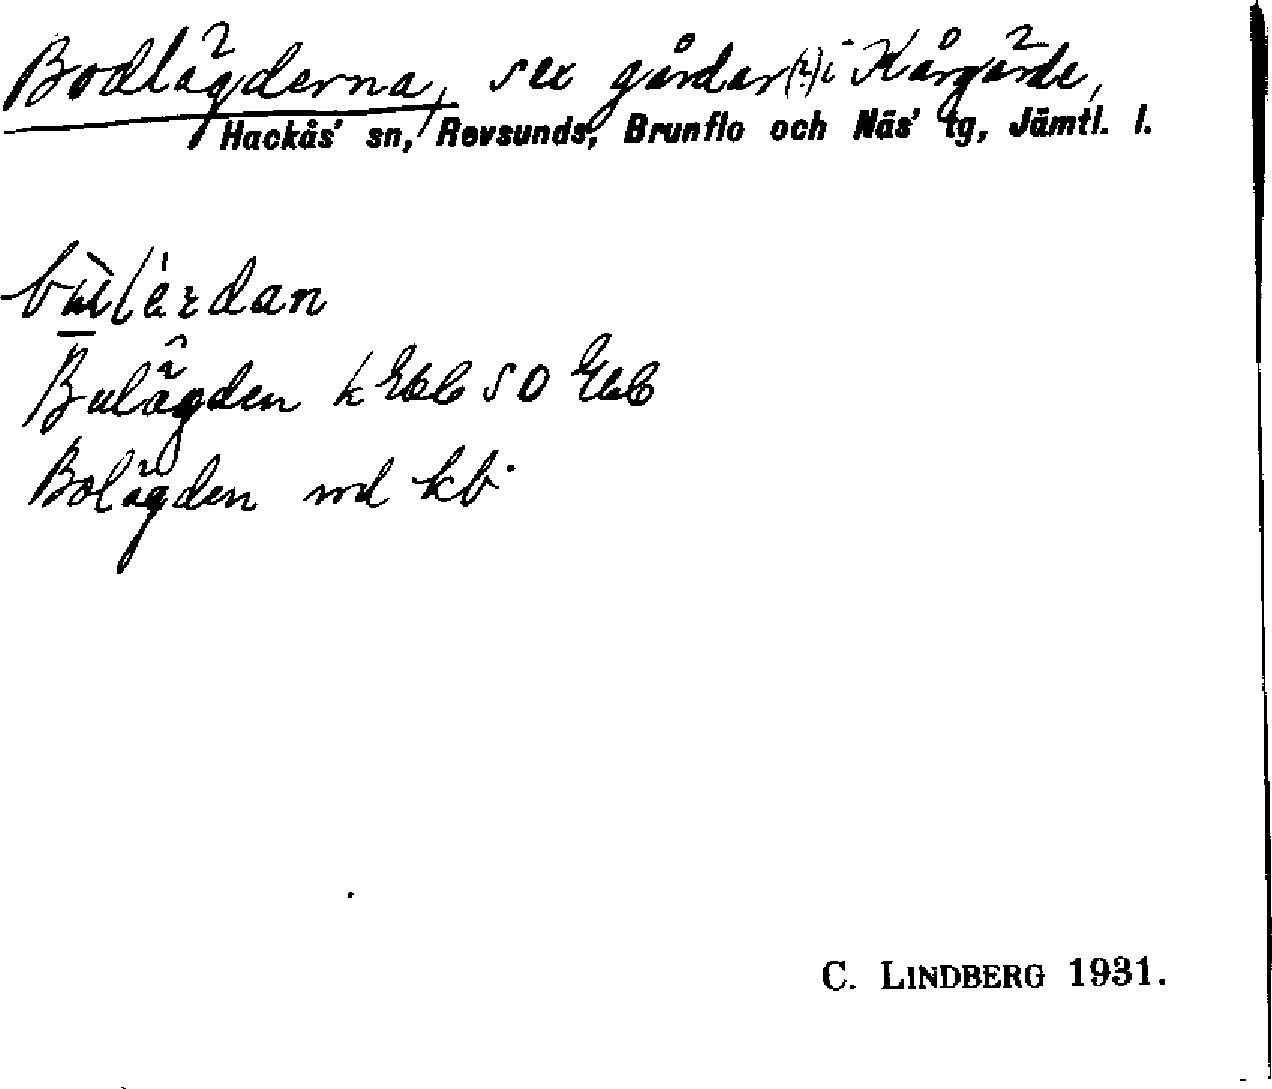 Bodlägderna, sex gårdar (?) i Kårgärde,
Hackås' sn, Revsunds, Brunflo och Näs' tg, Jämtl. l.
Bulägden k Ekb SO Ekb
Bolägden md kb
C. LINDBERG 1931.